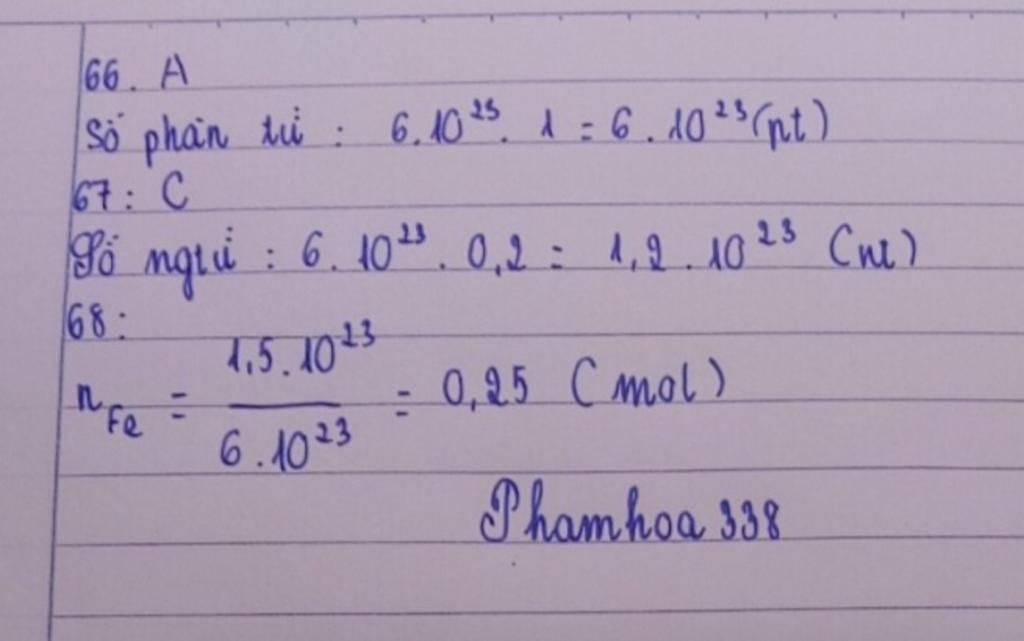 66. A
Số phân tử : 6.10²³. 1 = 6 . 10²³(pt)
67: C
Số ngtử : 6. 10²³. 0,2 = 1,2 . 10²³ (nt)
68:
n_Fe = 1,5.10²³ / 6.10²³ = 0,25 (mol)
Phamhoa 338